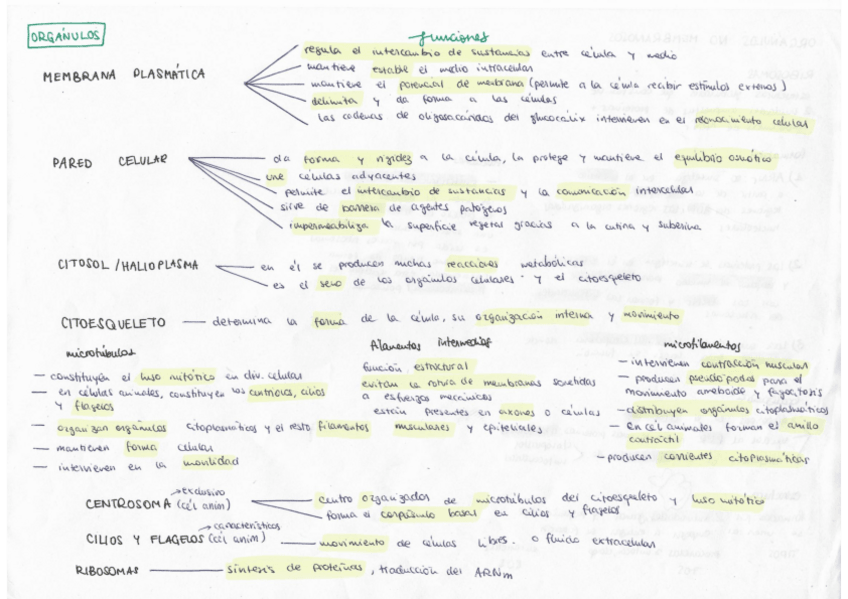 ORGÁNULOS
funciones
MEMBRANA PLASMÁTICA
regula el intercambio de sustancias entre célula y medio
mantiene estable el medio intracelular
mantiene el potencial de membrana (permite a la célula recibir estímulos externos)
delimita y da forma a las células
las cadenas de oligosacáridos del glucocálix intervienen en el reconocimiento celular
PARED CELULAR
da forma y rigidez a la célula, la protege y mantiene el equilibrio osmótico
une células adyacentes
permite el intercambio de sustancias y la comunicación intercelular
sirve de barrera de agentes patógenos
impermeabiliza la superficie vegetal gracias a la cutina y suberina
CITOSOL / HALIOPLASMA
en él se producen muchas reacciones metabólicas
es el seno de los orgánulos celulares y el citoesqueleto
CITOESQUELETO — determina la forma de la célula, su organización interna y movimiento
microtúbulos
— constituyen el huso mitótico en div. celular
— en células animales, constituyen los centriolos, cilios
y flagelos
— organizan orgánulos citoplasmáticos y el resto filamentos
— mantienen forma celular
— intervienen en la movilidad
filamentos intermedios
función estructural
evitan la rotura de membranas sometidas
a esfuerzos mecánicos
están presentes en axones o células
musculares y epiteliales
microfilamentos
— intervienen contracción muscular
— producen pseudópodos para el
movimiento ameboide y fagocitosis
— distribuyen orgánulos citoplasmáticos
— en cél animales forman el anillo
contráctil
— producen corrientes citoplasmáticas
→ exclusivo
CENTROSOMA (cél anim)
centro organizador de microtúbulos del citoesqueleto y huso mitótico
forma el corpúsculo basal en cilios y flagelos
→ característicos
CILIOS Y FLAGELOS (cél anim) — movimiento de células libres o fluido extracelular
RIBOSOMAS — síntesis de proteínas, traducción del ARNm